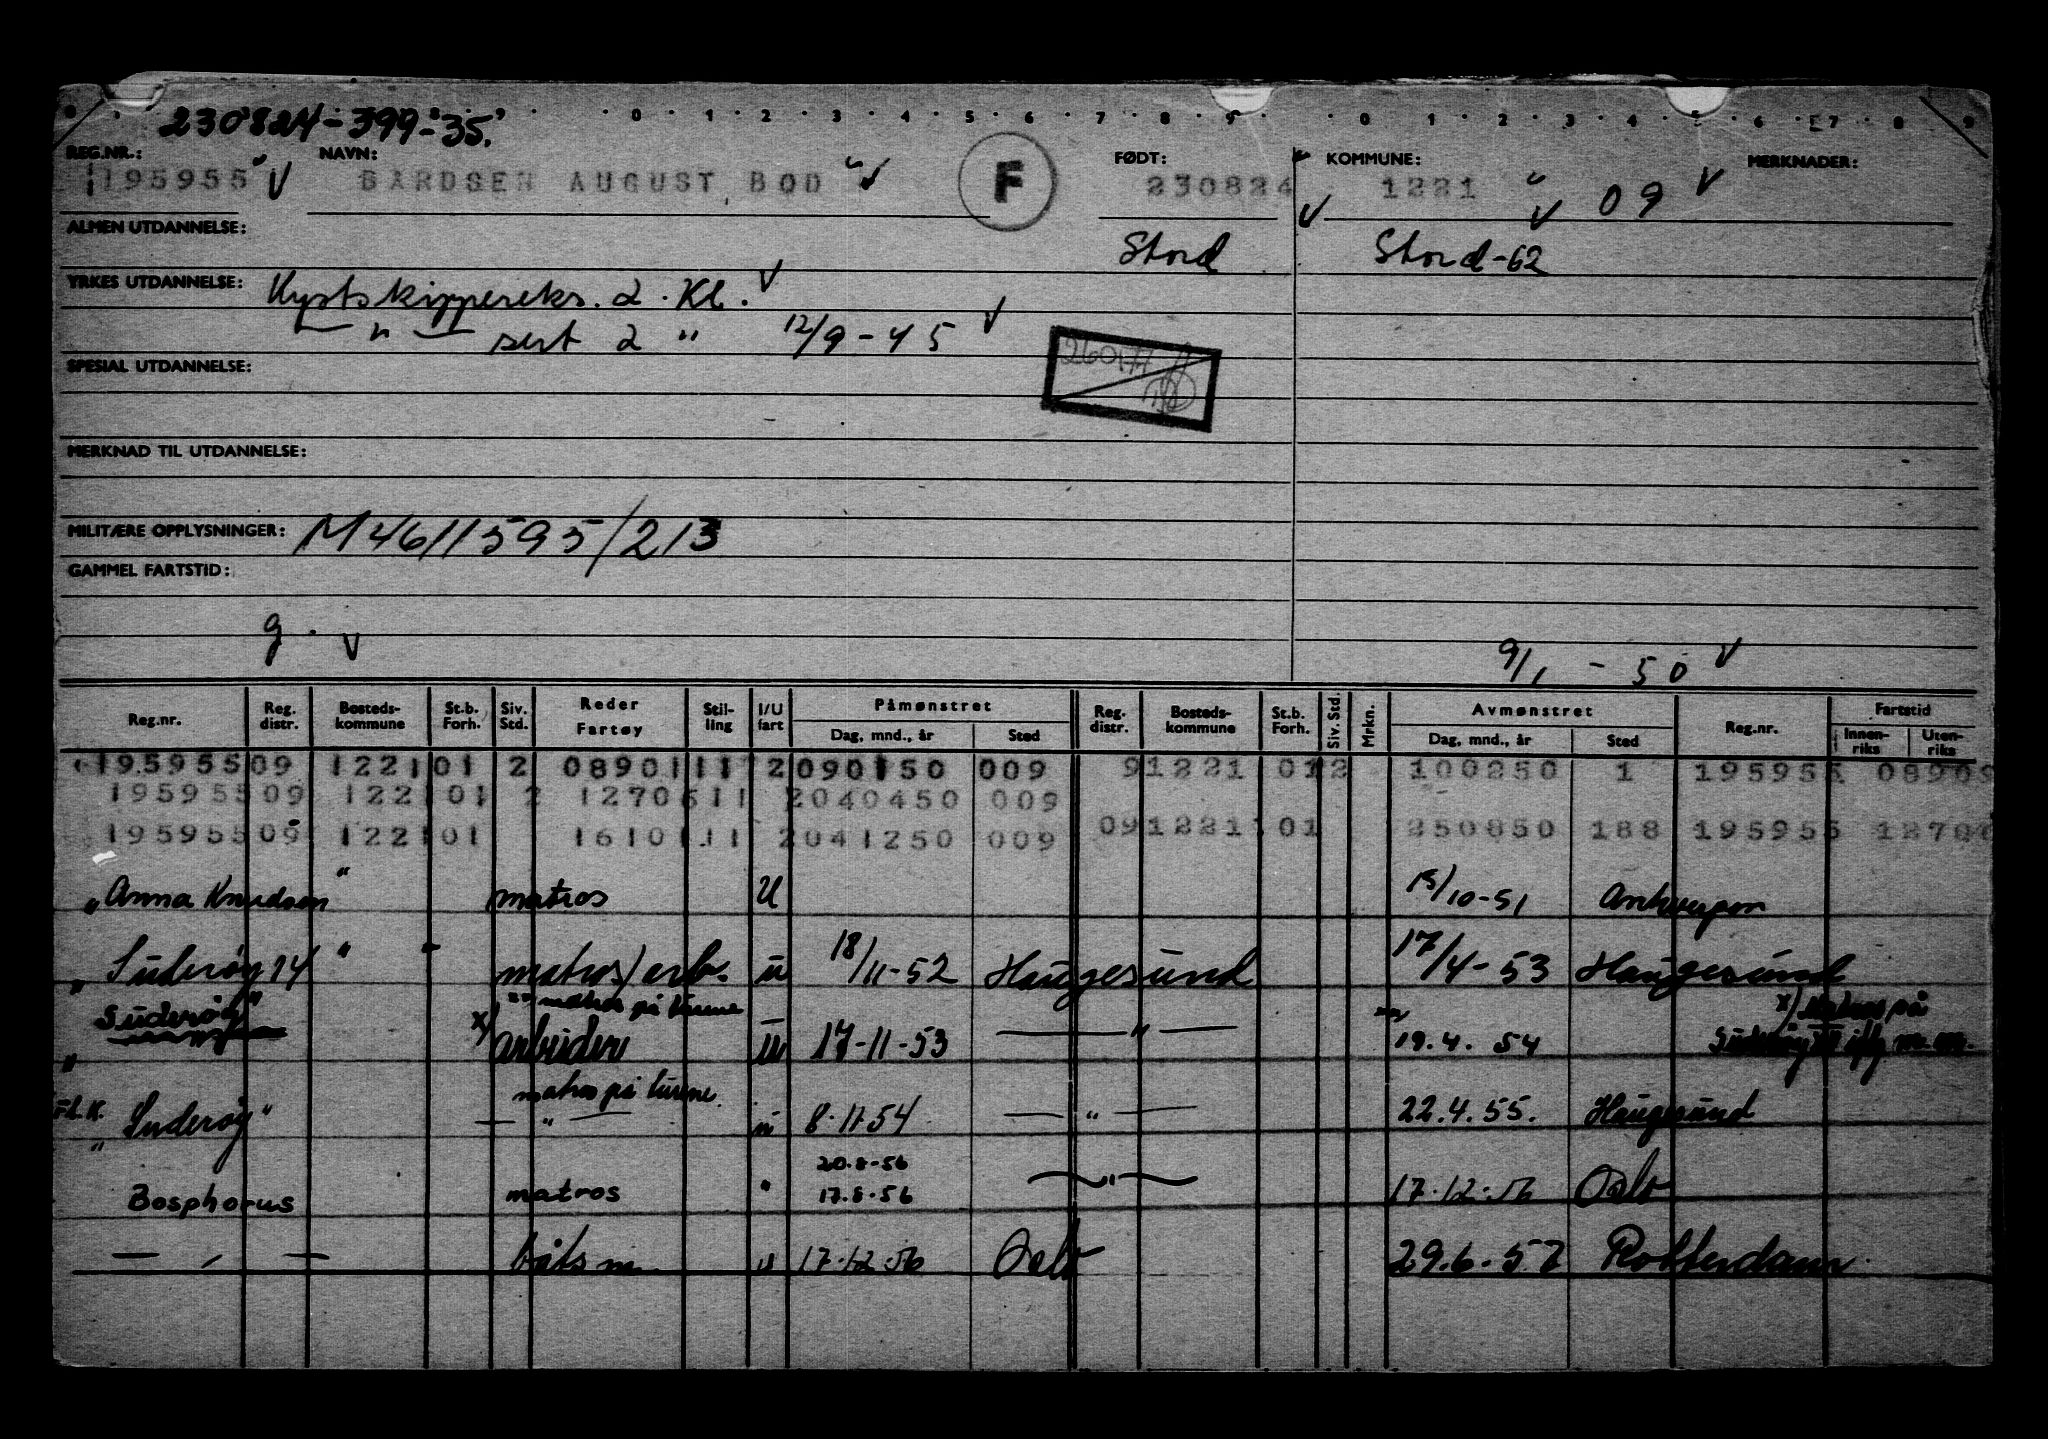 230824-399-35.
0 1 2 3 4 5 6 7 8 9 0 1 2 3 4 5 6 7 8 9
REG.NR.: NAVN: FØDT: KOMMUNE: MERKNADER:
195955 V BÅRDSEN AUGUST BOD F 230824 V 1221 V 09 V
ALMEN UTDANNELSE:
Stord Stord-62
YRKES UTDANNELSE: Kystskippereks. 2. Kl. V
— " — sert 2 " 12/9-45 V
260177
SPESIAL UTDANNELSE:
MERKNAD TIL UTDANNELSE:
MILITÆRE OPPLYSNINGER: M4611595/213
GAMMEL FARTSTID:
g. V
9/1-50 V
Reg.nr. Reg. distr. Bosteds-kommune St.b. Forh. Siv. Std. Reder Fartøy Stil-ling I/U fart Påmønstret Dag, mnd., år Sted Reg. distr. Bosteds-kommune St.b. Forh. Siv. Std. Mrkn. Avmønstret Dag, mnd., år Sted Reg.nr. Fartstid Innen-riks Uten-riks
195955 09 1221 01 2 0890111 2 090150 009 9 1221 01 2 100250 1 195955 08909
195955 09 1221 01 2 1270611 2 040450 009
195955 09 1221 01 1610111 2 041250 009 09 1221 01 250850 188 195955 12706
" Anna Knudsen " matros U 15/10-51 Antwerpen
" Suderøy 14 " " matros/arb. u 18/11-52 Haugesund 17/4-53 Haugesund
"Suderøy" x) arbeider "" matros på turene u 17-11-53 — " — 19.4.54 x) Matros på
Fl.K. "Suderøy" — " — matros på turene u 8.11.54 — " — 22.4.55. Haugesund
20.8-56
Bosphorus matros " 17.8.56 — " — 17.12.56 Oslo
— " — båtsm. u 17.12.56 Oslo 29.6.57 Rotterdam